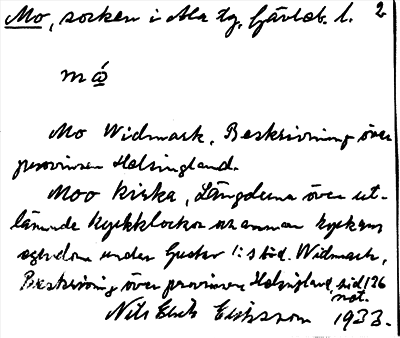 Mo, socken i Ala tg. Gävleb. l. 2
mώ
Mo Widmark, Beskrivning över
provinsen Helsingland.
Moo kirka, Längderna över ut-
lämnade kyrkklockor annan kyrkans
egendom under Gustav I:s tid. Widmark,
Beskrivning över provinsen Helsingland, sid 126
not.
Nils Erik Eriksson 1933.